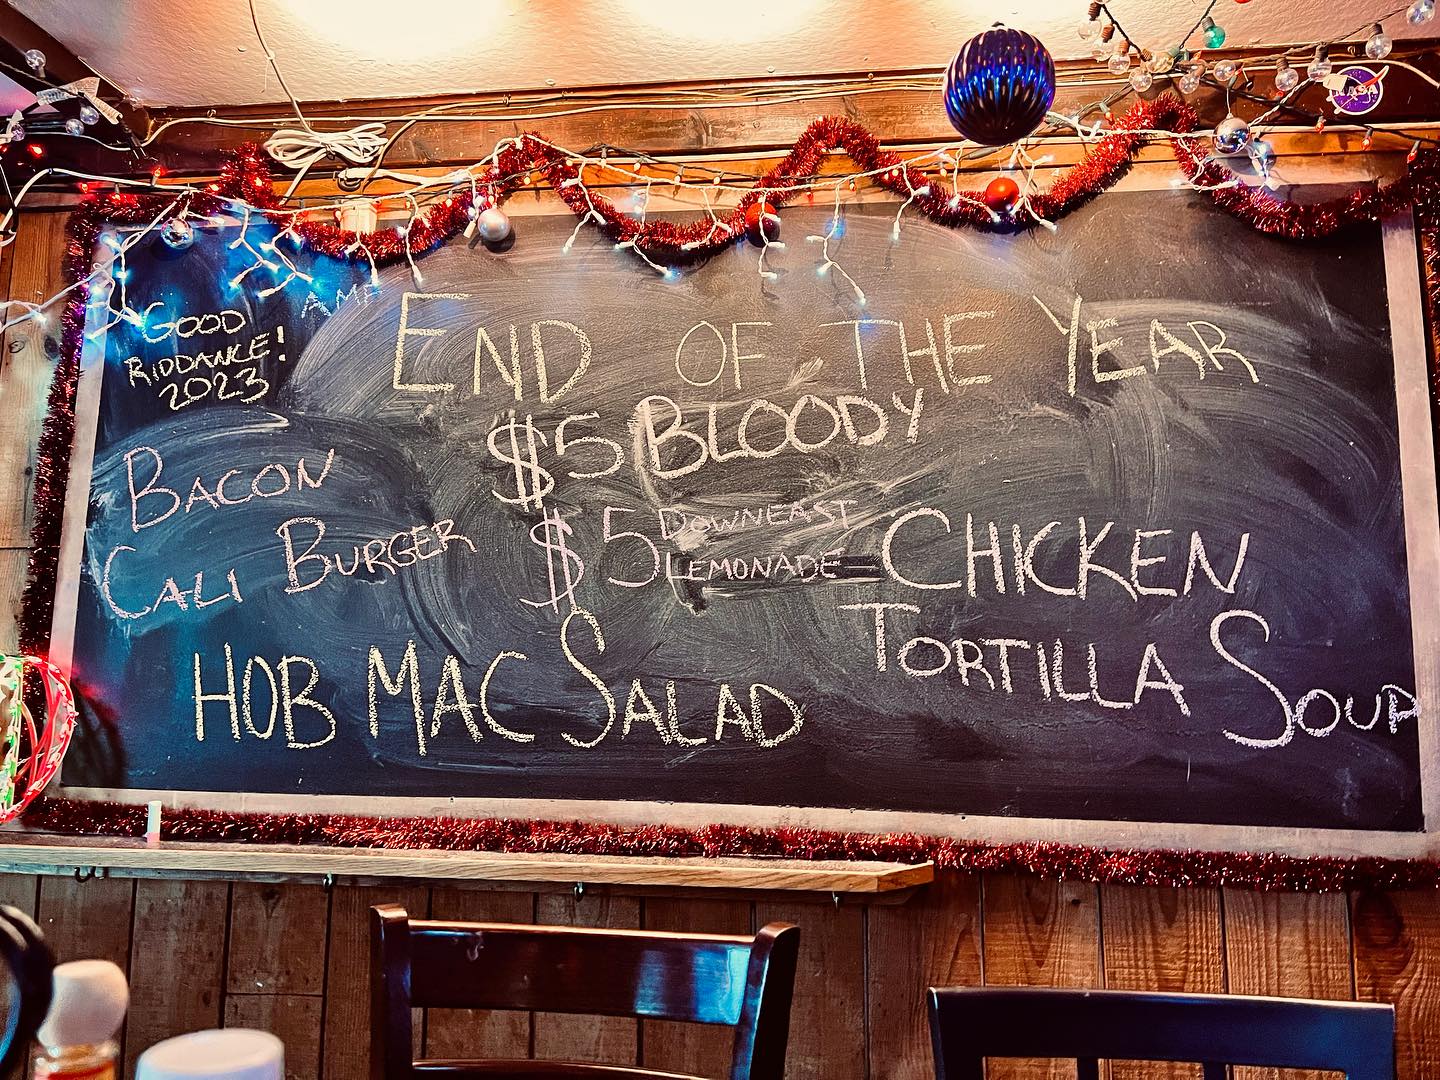 GOOD
RIDDANCE!
2023
END OF THE YEAR
$5 BLOODY
BACON
CALI BURGER
$5 DOWNEAST
LEMONADE
CHICKEN
TORTILLA SOUP
HOB MAC SALAD
NASA